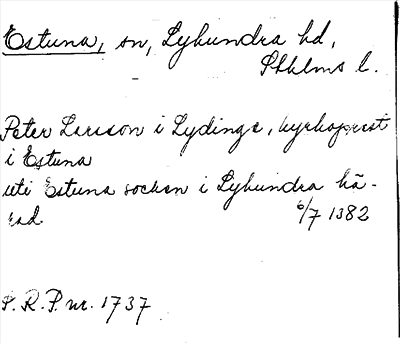 Estuna, sn, Lyhundra hd,
Sthlms l.
Peter Larsson i Lydinge, kyrkoprest
i Estuna
uti Estuna socken i Lyhundra hä-
rad. 6/7 1382
S.R.P. nr. 1737